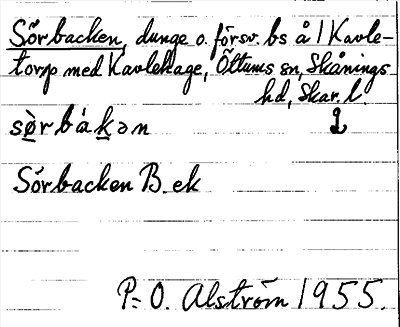 Sörbacken, dunge o. försv. bs å 1 Kavle-
torp med Kavlehage, Öttums sn, Skånings
hd, Skar. l.
sö̀rbákən
Sörbacken B. ek
P: O. Alström 1955.